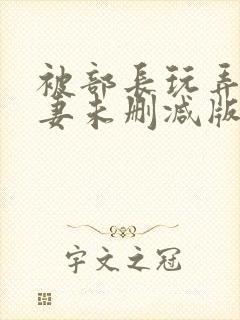 被部長玩弄
妻未删减版
宇文之冠